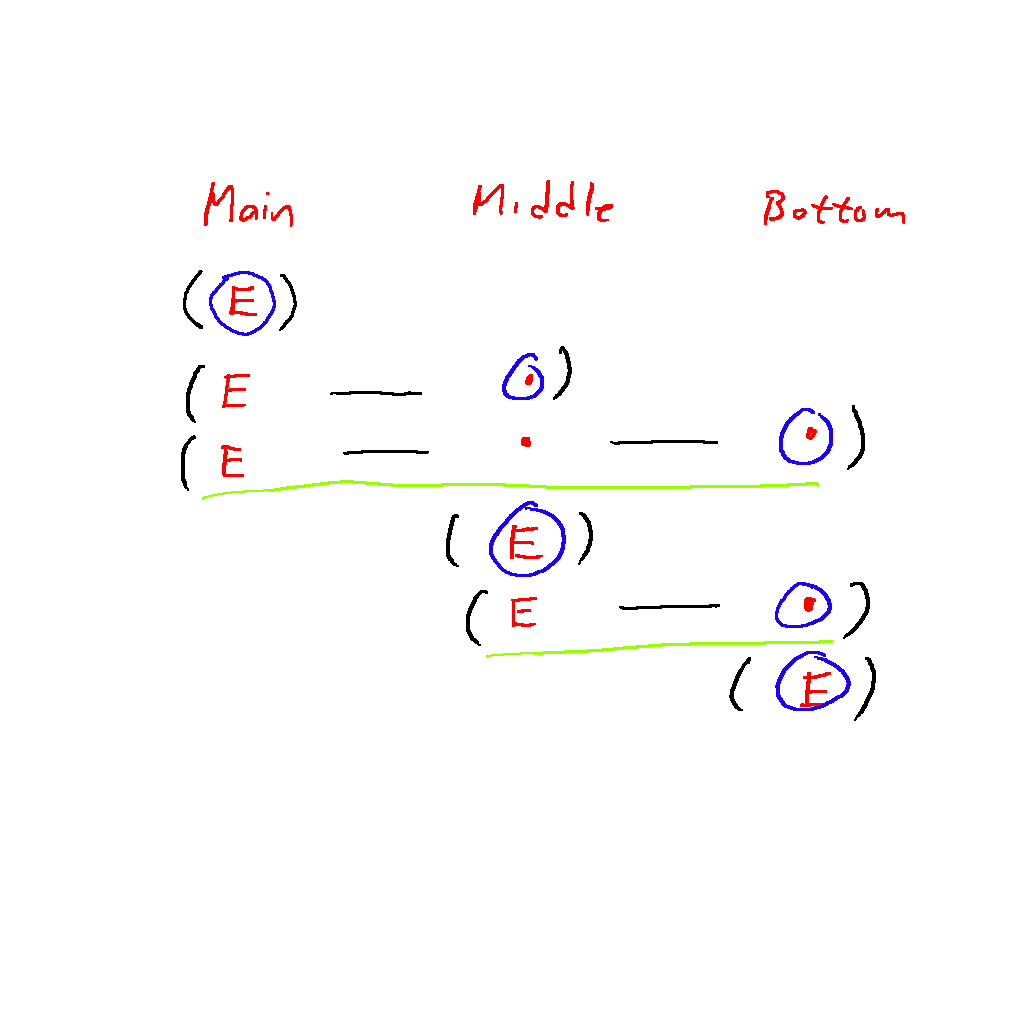 Main Middle Bottom
(E)
(E — •)
(E — • — •)
(E)
(E — •)
(E)